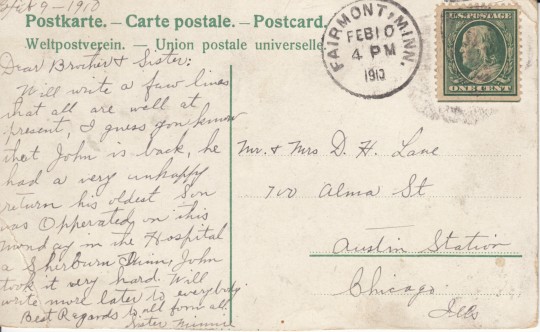 Feb 9 - 1910
Postkarte. — Carte postale. — Postcard.
Weltpostverein. — Union postale universelle.
Dear Brother & Sister:
Will write a few lines
that all are well at
present, I guess you know
that John is back, he
had a very unhappy
return his oldest Son
was Opperated on this
Monday in the Hospital
a Sherburn Minn, John
took it very hard. Will
write more later to everybody
Best Regards to all from all
Sister Minnie
FAIRMONT, MINN.
FEB 10
4 PM
1910
U.S. POSTAGE
ONE CENT
Mr. & Mrs D. H. Lane
700 Alma St
Austin Station
Chicago
Ills